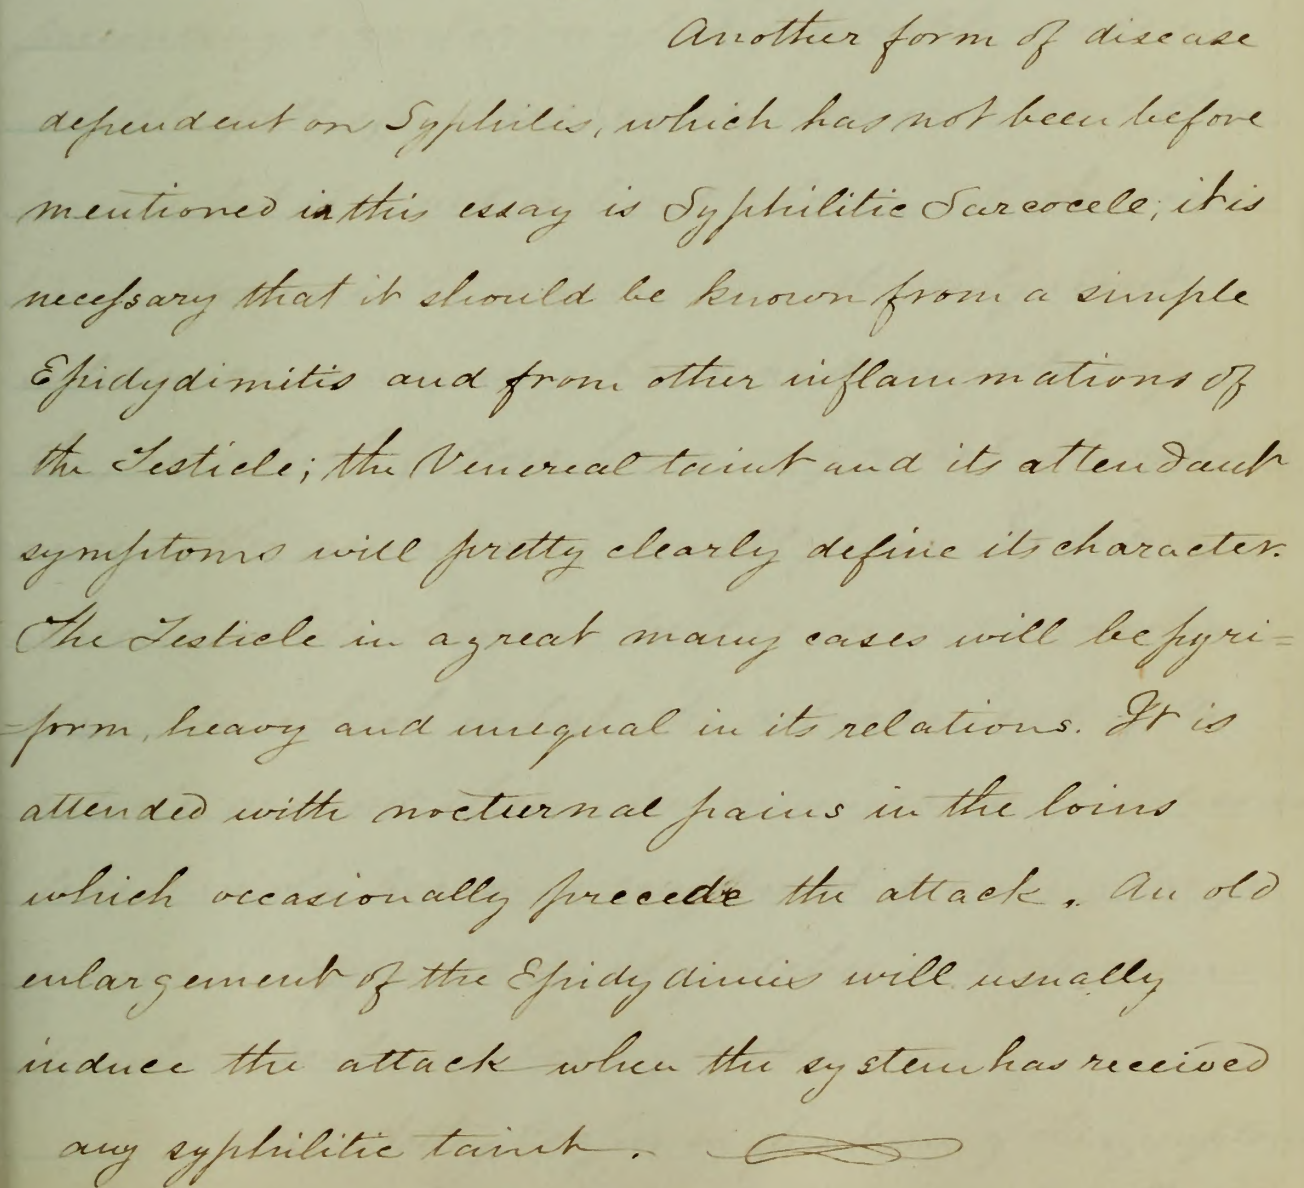 Another form of disease
dependent on Syphilis, which has not been before
mentioned in this essay is Syphilitic Sarcocele; it is
necessary that it should be known from a simple
Epidydimitis and from other inflammations of
the Testicle; the Venereal taint and its attendant
symptoms will pretty clearly define its character.
The Testicle in a great many cases will be pyri=
=form, heavy and unequal in its relations. It is
attended with nocturnal pains in the loins
which occasionally precede the attack. An old
enlargement of the Epidydimis will usually
induce the attack when the system has received
any syphilitic taint.